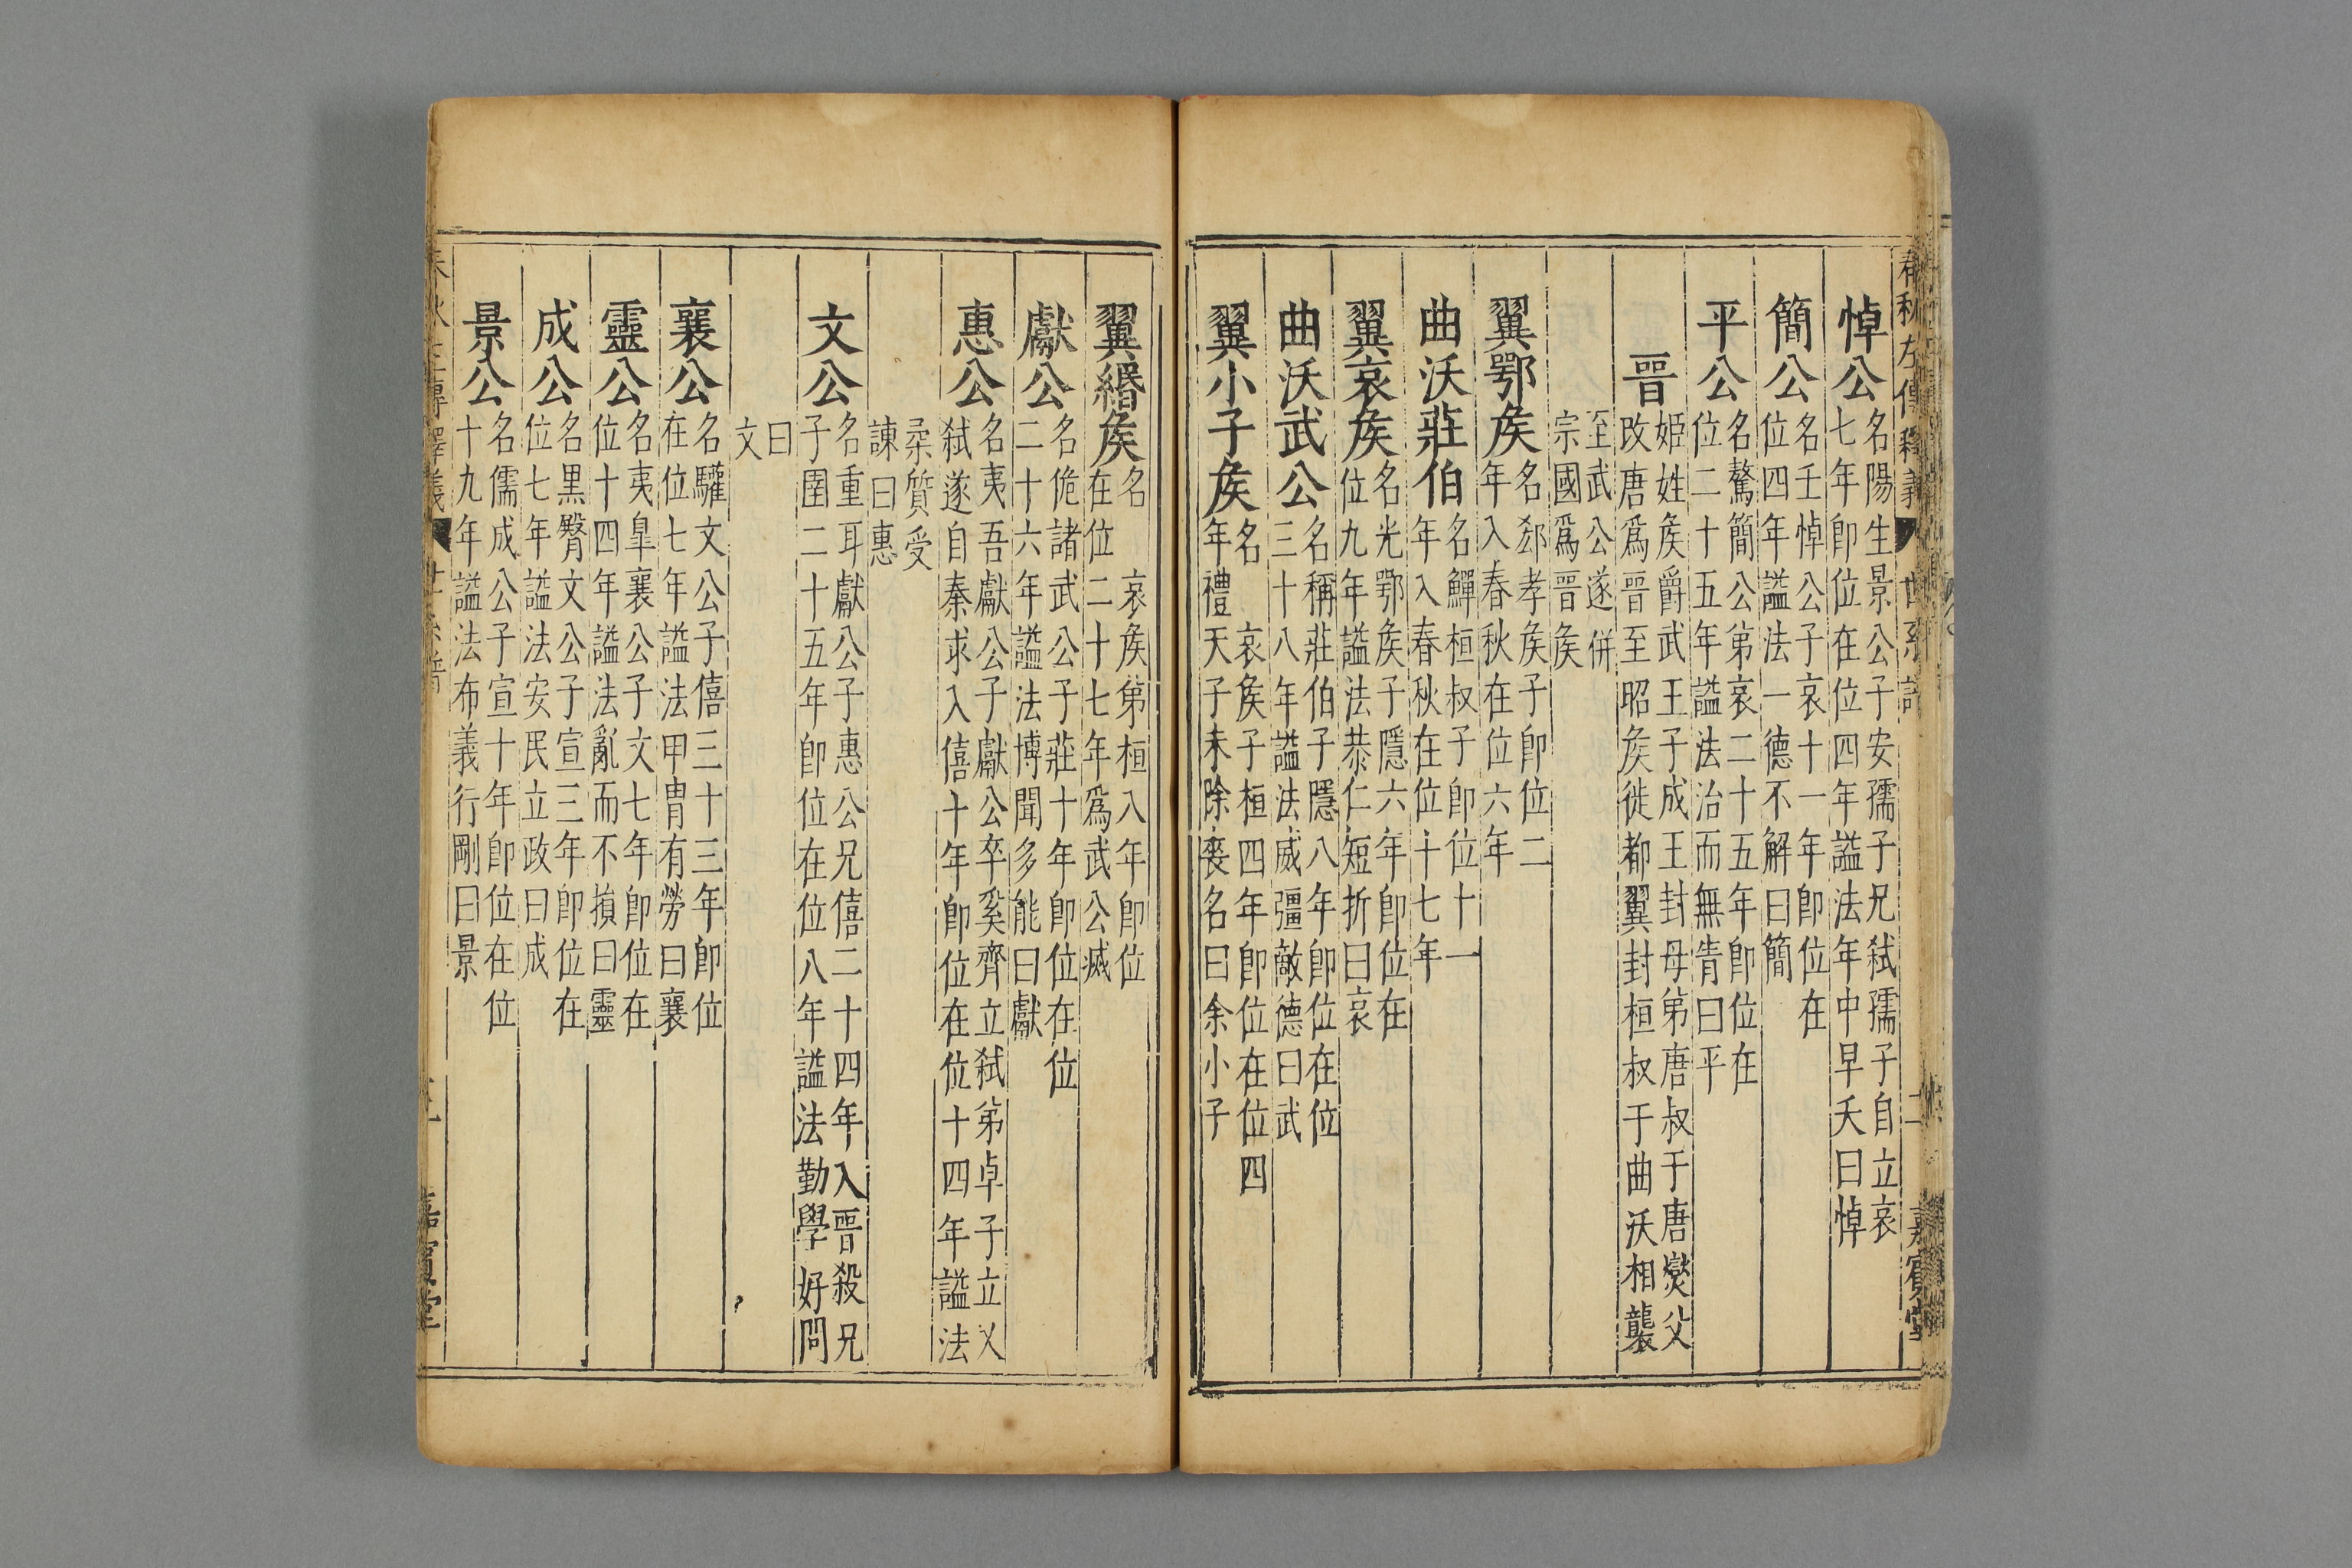 春秋左傳釋義 世系譜 二 嘉賓堂
悼公 名陽生景公子安孺子兄弒孺子自立哀
七年卽位在位四年謚法年中早夭曰悼
簡公 名壬悼公子哀十一年卽位在
位四年謚法一德不解曰簡
平公 名驁簡公弟哀二十五年卽位在
位二十五年謚法治而無眚曰平
晋 姬姓矦爵武王子成王封母弟唐叔于唐燮父
改唐爲晋至昭矦徙都翼封桓叔于曲沃相襲
至武公遂併
宗國爲晋矦
翼鄂矦 名郄孝矦子卽位二
年入春秋在位六年
曲沃莊伯 名鱓桓叔子卽位十一
年入春秋在位十七年
翼哀矦 名光鄂矦子隱六年卽位在
位九年謚法恭仁短折曰哀
曲沃武公 名稱莊伯子隱八年卽位在位
三十八年謚法威彊敵德曰武
翼小子矦 名 哀矦子桓四年卽位在位四
年禮天子未除喪名曰余小子
翼緡矦 名 哀矦弟桓八年卽位
在位二十七年爲武公滅
獻公 名佹諸武公子莊十年卽位在位
二十六年謚法博聞多能曰獻
惠公 名夷吾獻公子獻公卒奚齊立弒弟卓子立乂
弒遂自秦求入僖十年卽位在位十四年謚法
柔質受
諫曰惠
文公 名重耳獻公子惠公兄僖二十四年入晋殺兄
子圉二十五年卽位在位八年謚法勤學好問
曰
文
襄公 名驩文公子僖三十三年卽位
在位七年謚法甲冑有勞曰襄
靈公 名夷皐襄公子文七年卽位在
位十四年謚法亂而不損曰靈
成公 名黑臀文公子宣三年卽位在
位七年謚法安民立政曰成
景公 名儒成公子宣十年卽位在位
十九年謚法布義行剛曰景
春秋左傳釋義 世系譜 三 嘉賓堂